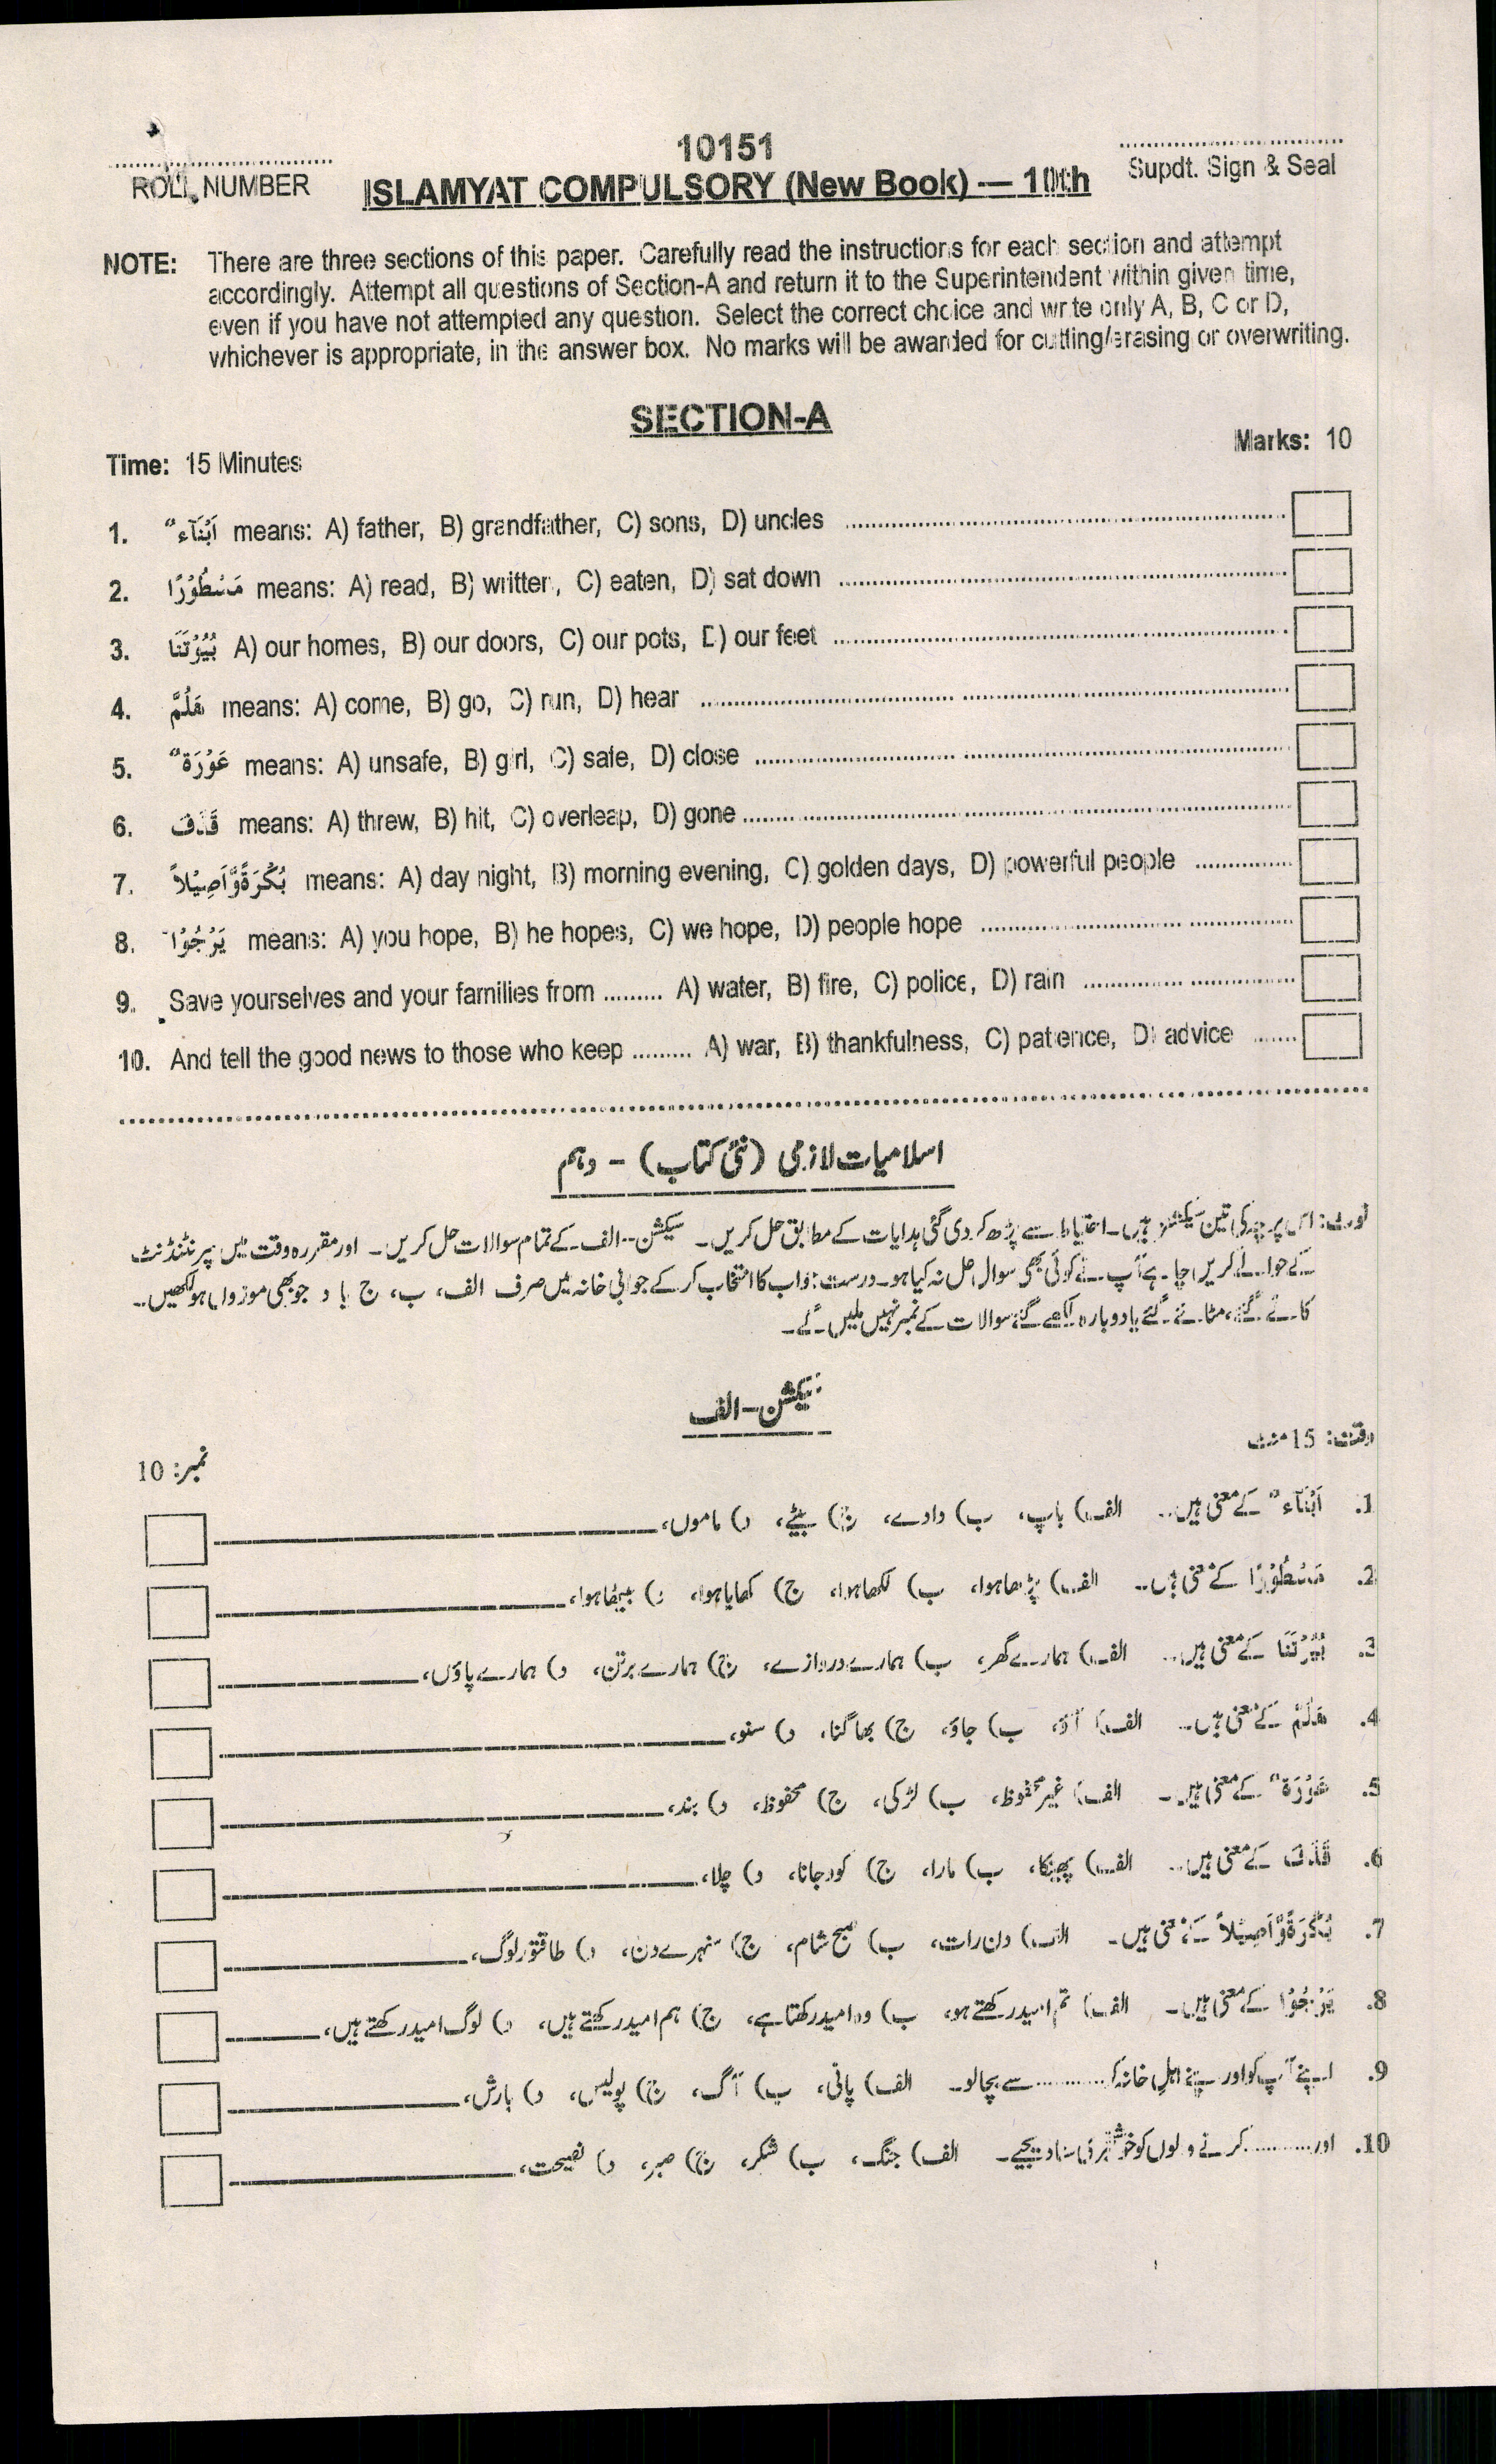 10151
ROLL NUMBER
ISLAMYAT COMPULSORY (New Book) — 10th
Supdt. Sign & Seal
NOTE: There are three sections of this paper. Carefully read the instructions for each section and attempt
accordingly. Attempt all questions of Section-A and return it to the Superintendent within given time,
even if you have not attempted any question. Select the correct choice and write only A, B, C or D,
whichever is appropriate, in the answer box. No marks will be awarded for cutting/erasing or overwriting.
SECTION-A
Time: 15 Minutes
Marks: 10
1. اَبْنَآء ٌ means: A) father, B) grandfather, C) sons, D) uncles
2. مَسْطُوْرًا means: A) read, B) written, C) eaten, D) sat down
3. بُيُوْتَنَا A) our homes, B) our doors, C) our pots, D) our feet
4. هَلُمَّ means: A) come, B) go, C) run, D) hear
5. عَوْرَة ٌ means: A) unsafe, B) girl, C) safe, D) close
6. قَذَفَ means: A) threw, B) hit, C) overleap, D) gone
7. بُكْرَةً وَّاَصِيْلاً means: A) day night, B) morning evening, C) golden days, D) powerful people
8. يَرْجُوْا means: A) you hope, B) he hopes, C) we hope, D) people hope
9. Save yourselves and your families from ......... A) water, B) fire, C) police, D) rain
10. And tell the good news to those who keep ......... A) war, B) thankfulness, C) patience, D) advice
اسلامیات لازمی (نئی کتاب) - دہم
نوٹ: اس پرچہ کی تین سیکشنز ہیں۔ احتیاط سے پڑھ کر دی گئی ہدایات کے مطابق حل کریں۔ سیکشن-الف کے تمام سوالات حل کریں۔ اور مقررہ وقت میں سپرنٹنڈنٹ
کے حوالے کریں چاہے آپ نے کوئی بھی سوال حل نہ کیا ہو۔ درست جواب کا انتخاب کر کے جوابی خانہ میں صرف الف، ب، ج یا د جو بھی موزوں ہو لکھیں۔
کاٹے گئے، مٹائے گئے یا دوبارہ لکھے گئے سوالات کے نمبر نہیں ملیں گے۔
سیکشن-الف
وقت: 15 منٹ
نمبر: 10
1. اَبْنَآء ٌ کے معنی ہیں۔ الف) باپ، ب) دادے، ج) بیٹے، د) ماموں،
2. مَسْطُوْرًا کے معنی ہیں۔ الف) پڑھا ہوا، ب) لکھا ہوا، ج) کھایا ہوا، د) بیٹھا ہوا،
3. بُيُوْتَنَا کے معنی ہیں۔ الف) ہمارے گھر، ب) ہمارے دروازے، ج) ہمارے برتن، د) ہمارے پاؤں،
4. هَلُمَّ کے معنی ہیں۔ الف) آؤ، ب) جاؤ، ج) بھاگنا، د) سنو،
5. عَوْرَة ٌ کے معنی ہیں۔ الف) غیر محفوظ، ب) لڑکی، ج) محفوظ، د) بند،
6. قَذَفَ کے معنی ہیں۔ الف) پھینکا، ب) مارا، ج) کود جانا، د) چلا،
7. بُكْرَةً وَّاَصِيْلاً کے معنی ہیں۔ الف) دن رات، ب) صبح شام، ج) سنہرے دن، د) طاقتور لوگ،
8. يَرْجُوْا کے معنی ہیں۔ الف) تم امید رکھتے ہو، ب) وہ امید رکھتا ہے، ج) ہم امید رکھتے ہیں، د) لوگ امید رکھتے ہیں،
9. اپنے آپ کو اور اپنے اہل خانہ کو ......... سے بچالو۔ الف) پانی، ب) آگ، ج) پولیس، د) بارش،
10. اور ......... کرنے والوں کو خوشخبری سنا دیجیے۔ الف) جنگ، ب) شکر، ج) صبر، د) نصیحت،